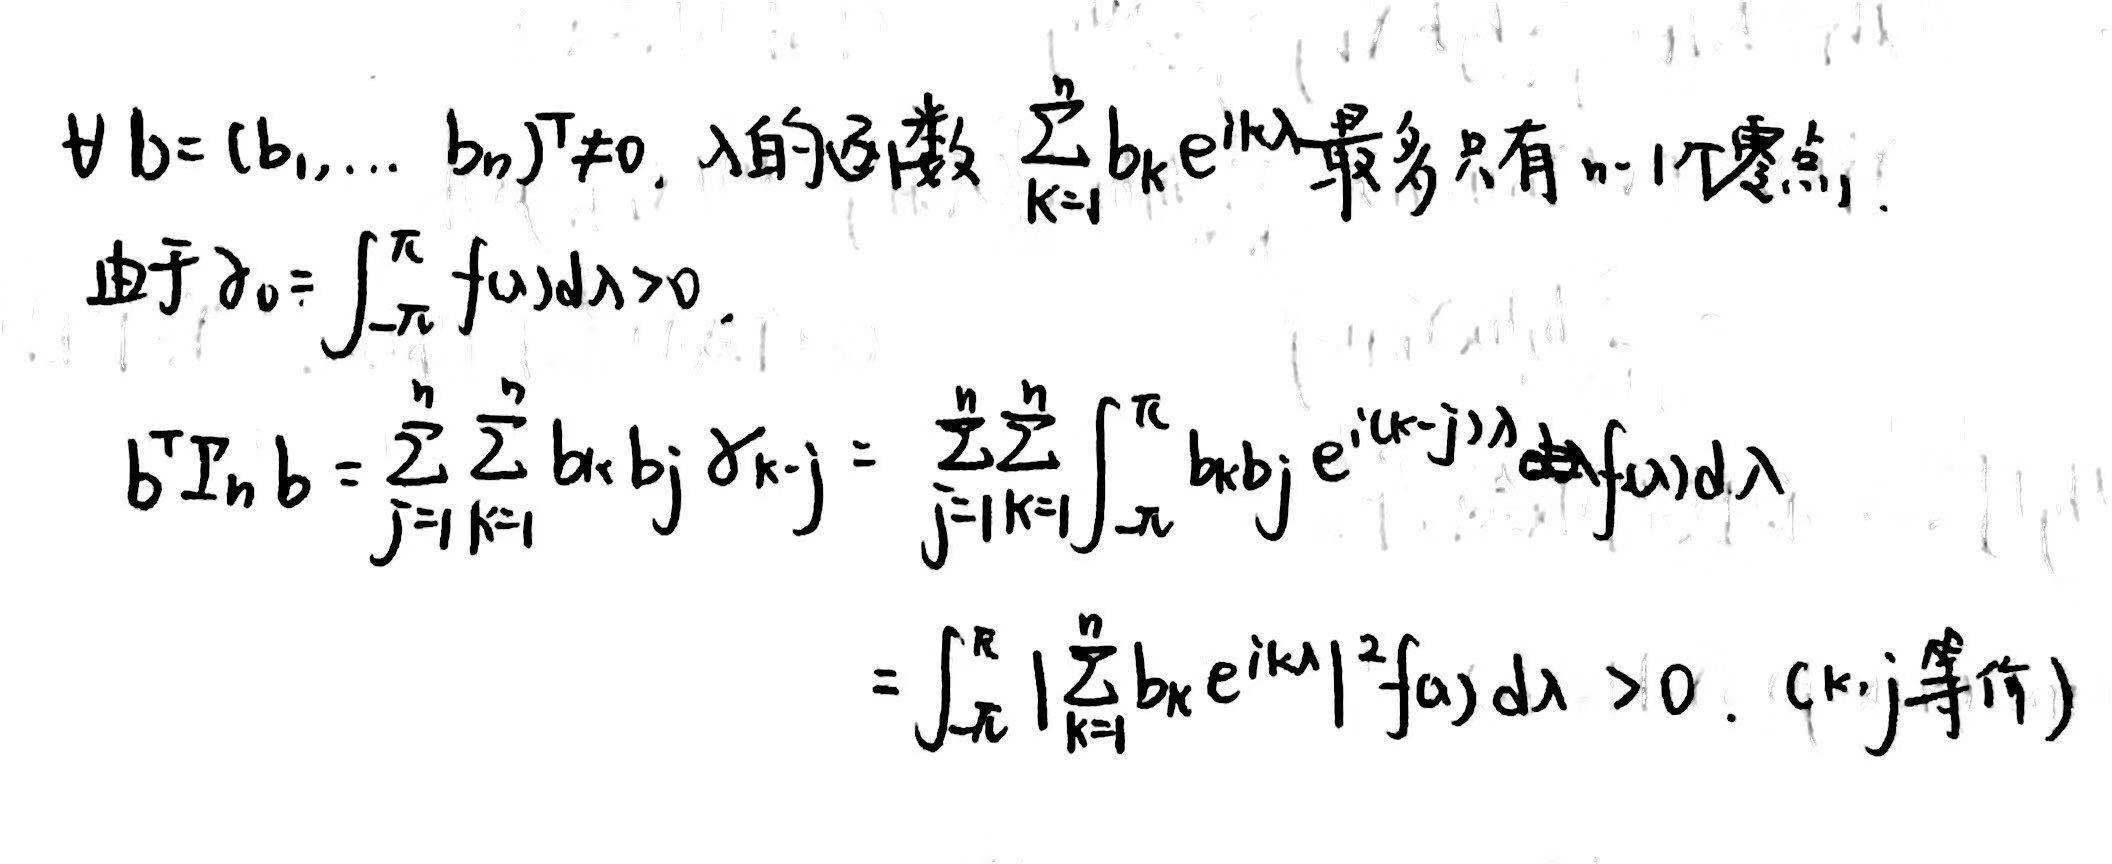 ∀ b = (b₁, ... bₙ)ᵀ ≠ 0, λ的函数 ∑_{k=1}^{n} b_k e^{ikλ} 最多只有 n-1个零点.
由于 γ₀ = ∫_{-π}^{π} f(λ)dλ > 0.
bᵀ Γₙ b = ∑_{j=1}^{n} ∑_{k=1}^{n} b_k b_j γ_{k-j} = ∑_{j=1}^{n} ∑_{k=1}^{n} ∫_{-π}^{π} b_k b_j e^{i(k-j)λ} f(λ)dλ
= ∫_{-π}^{π} |∑_{k=1}^{n} b_k e^{ikλ}|² f(λ) dλ > 0. (k,j等价)